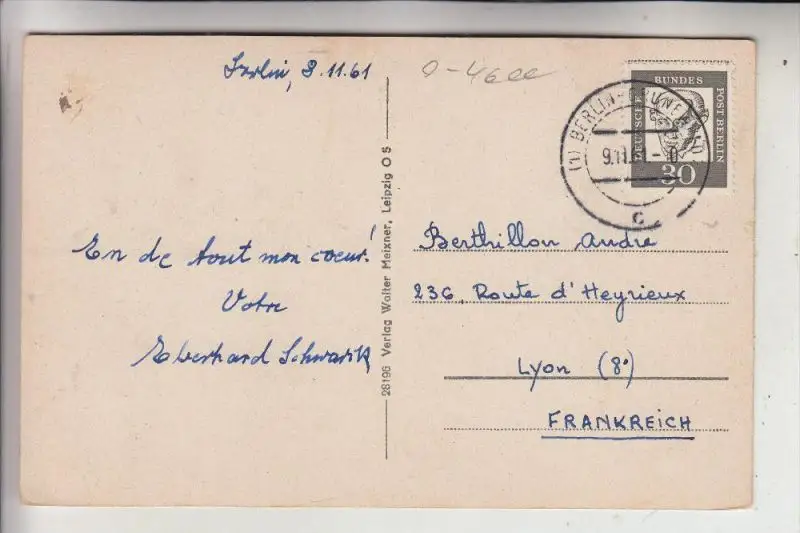 Berlin, 8.11.61
0-4600
En de tout mon coeur!
Votre
Eberhard Schwarik
28196 Verlag Walter Meixner, Leipzig O 5
DEUTSCHE
BUNDES
POST BERLIN
30
(1) BERLIN-GRUNEWALD
9.11.61
c
Berthillon Andre
236, Route d'Heyrieux
Lyon (8°)
FRANKREICH